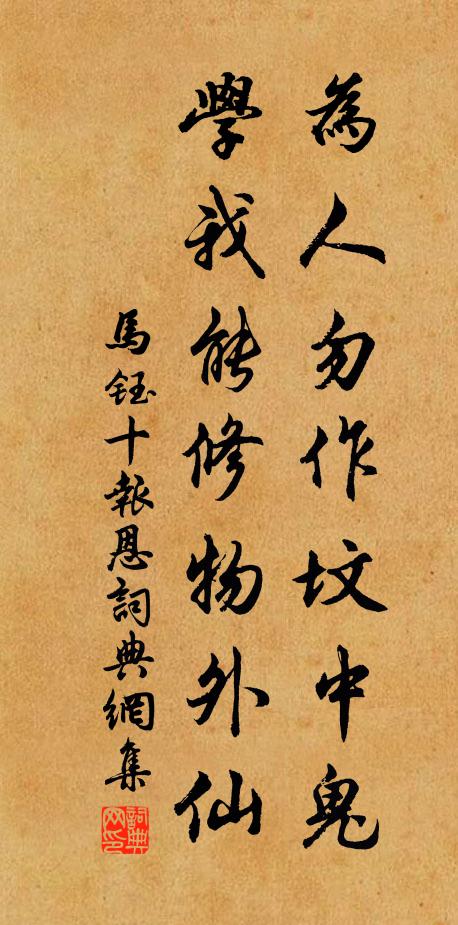 為人勿作坟中鬼
學我能修物外仙
馬鈺十報恩詞典網集
詞典网印